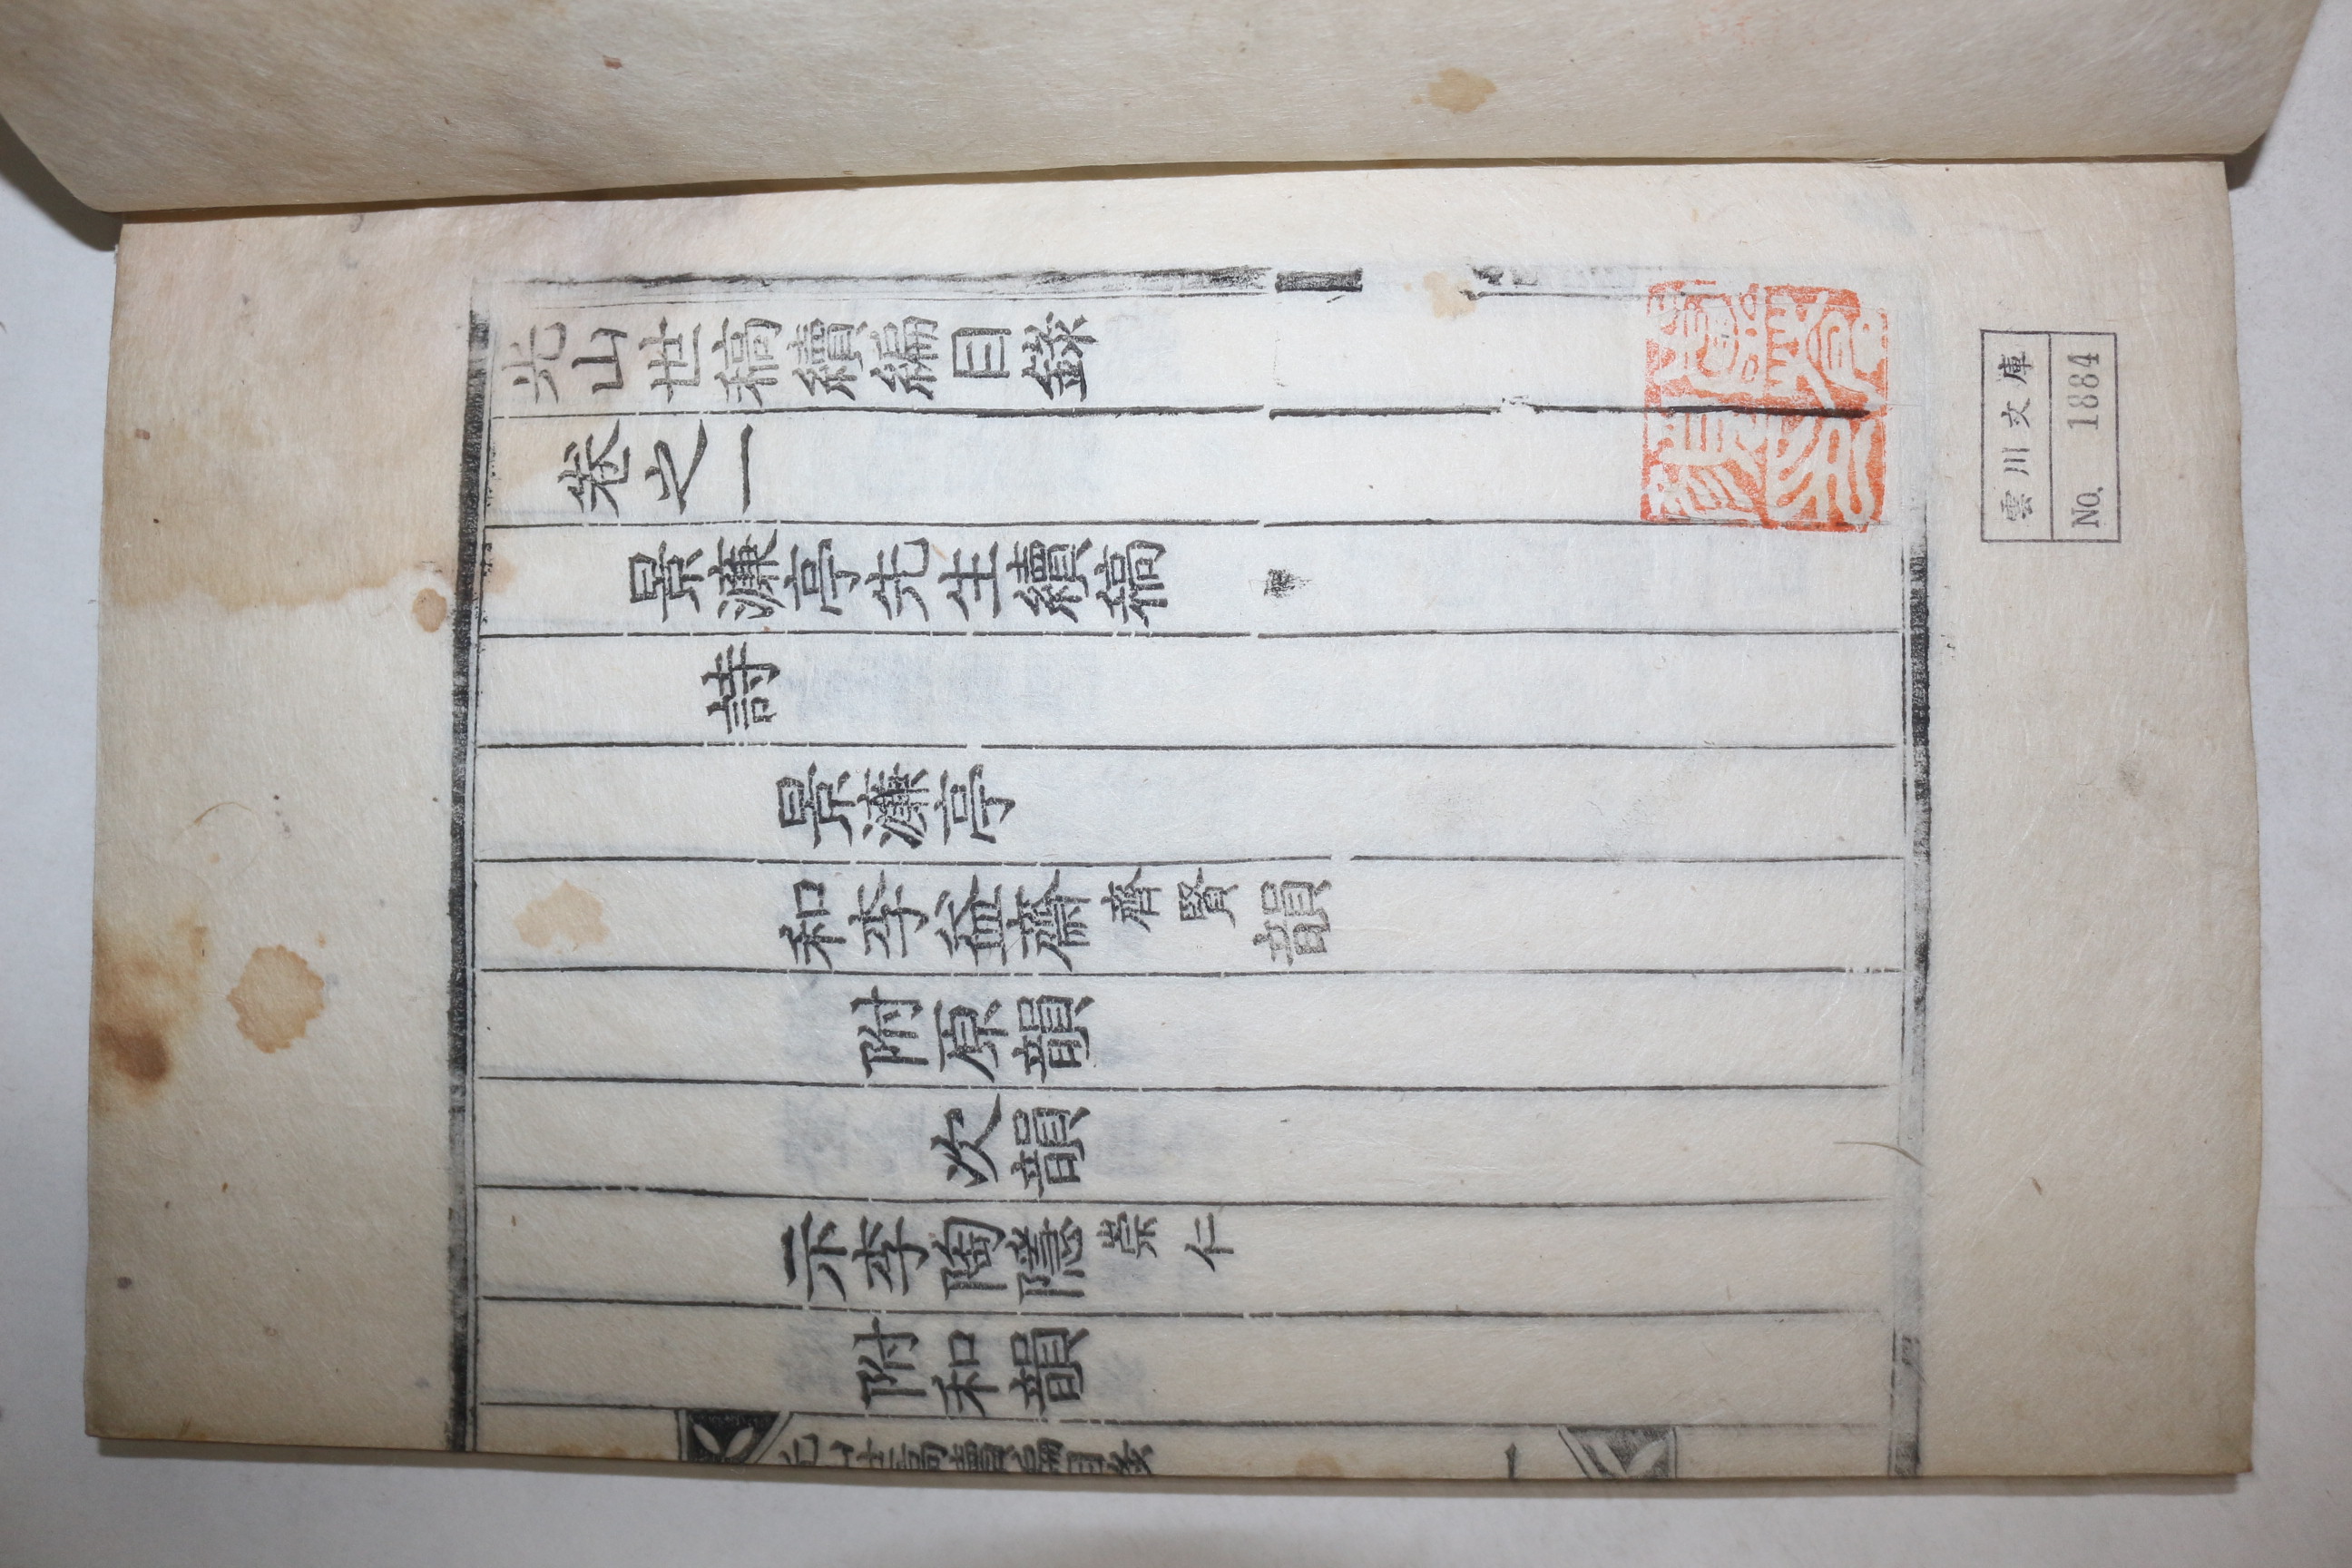 光山世稿續編目錄
卷之一
景濂亭先生續稿
詩
景濂亭
和李益齋齊賢韻
附原韻
次韻
示李陶隱崇仁
附和韻
光山世稿續編目錄 一
雲川文庫
No. 1884